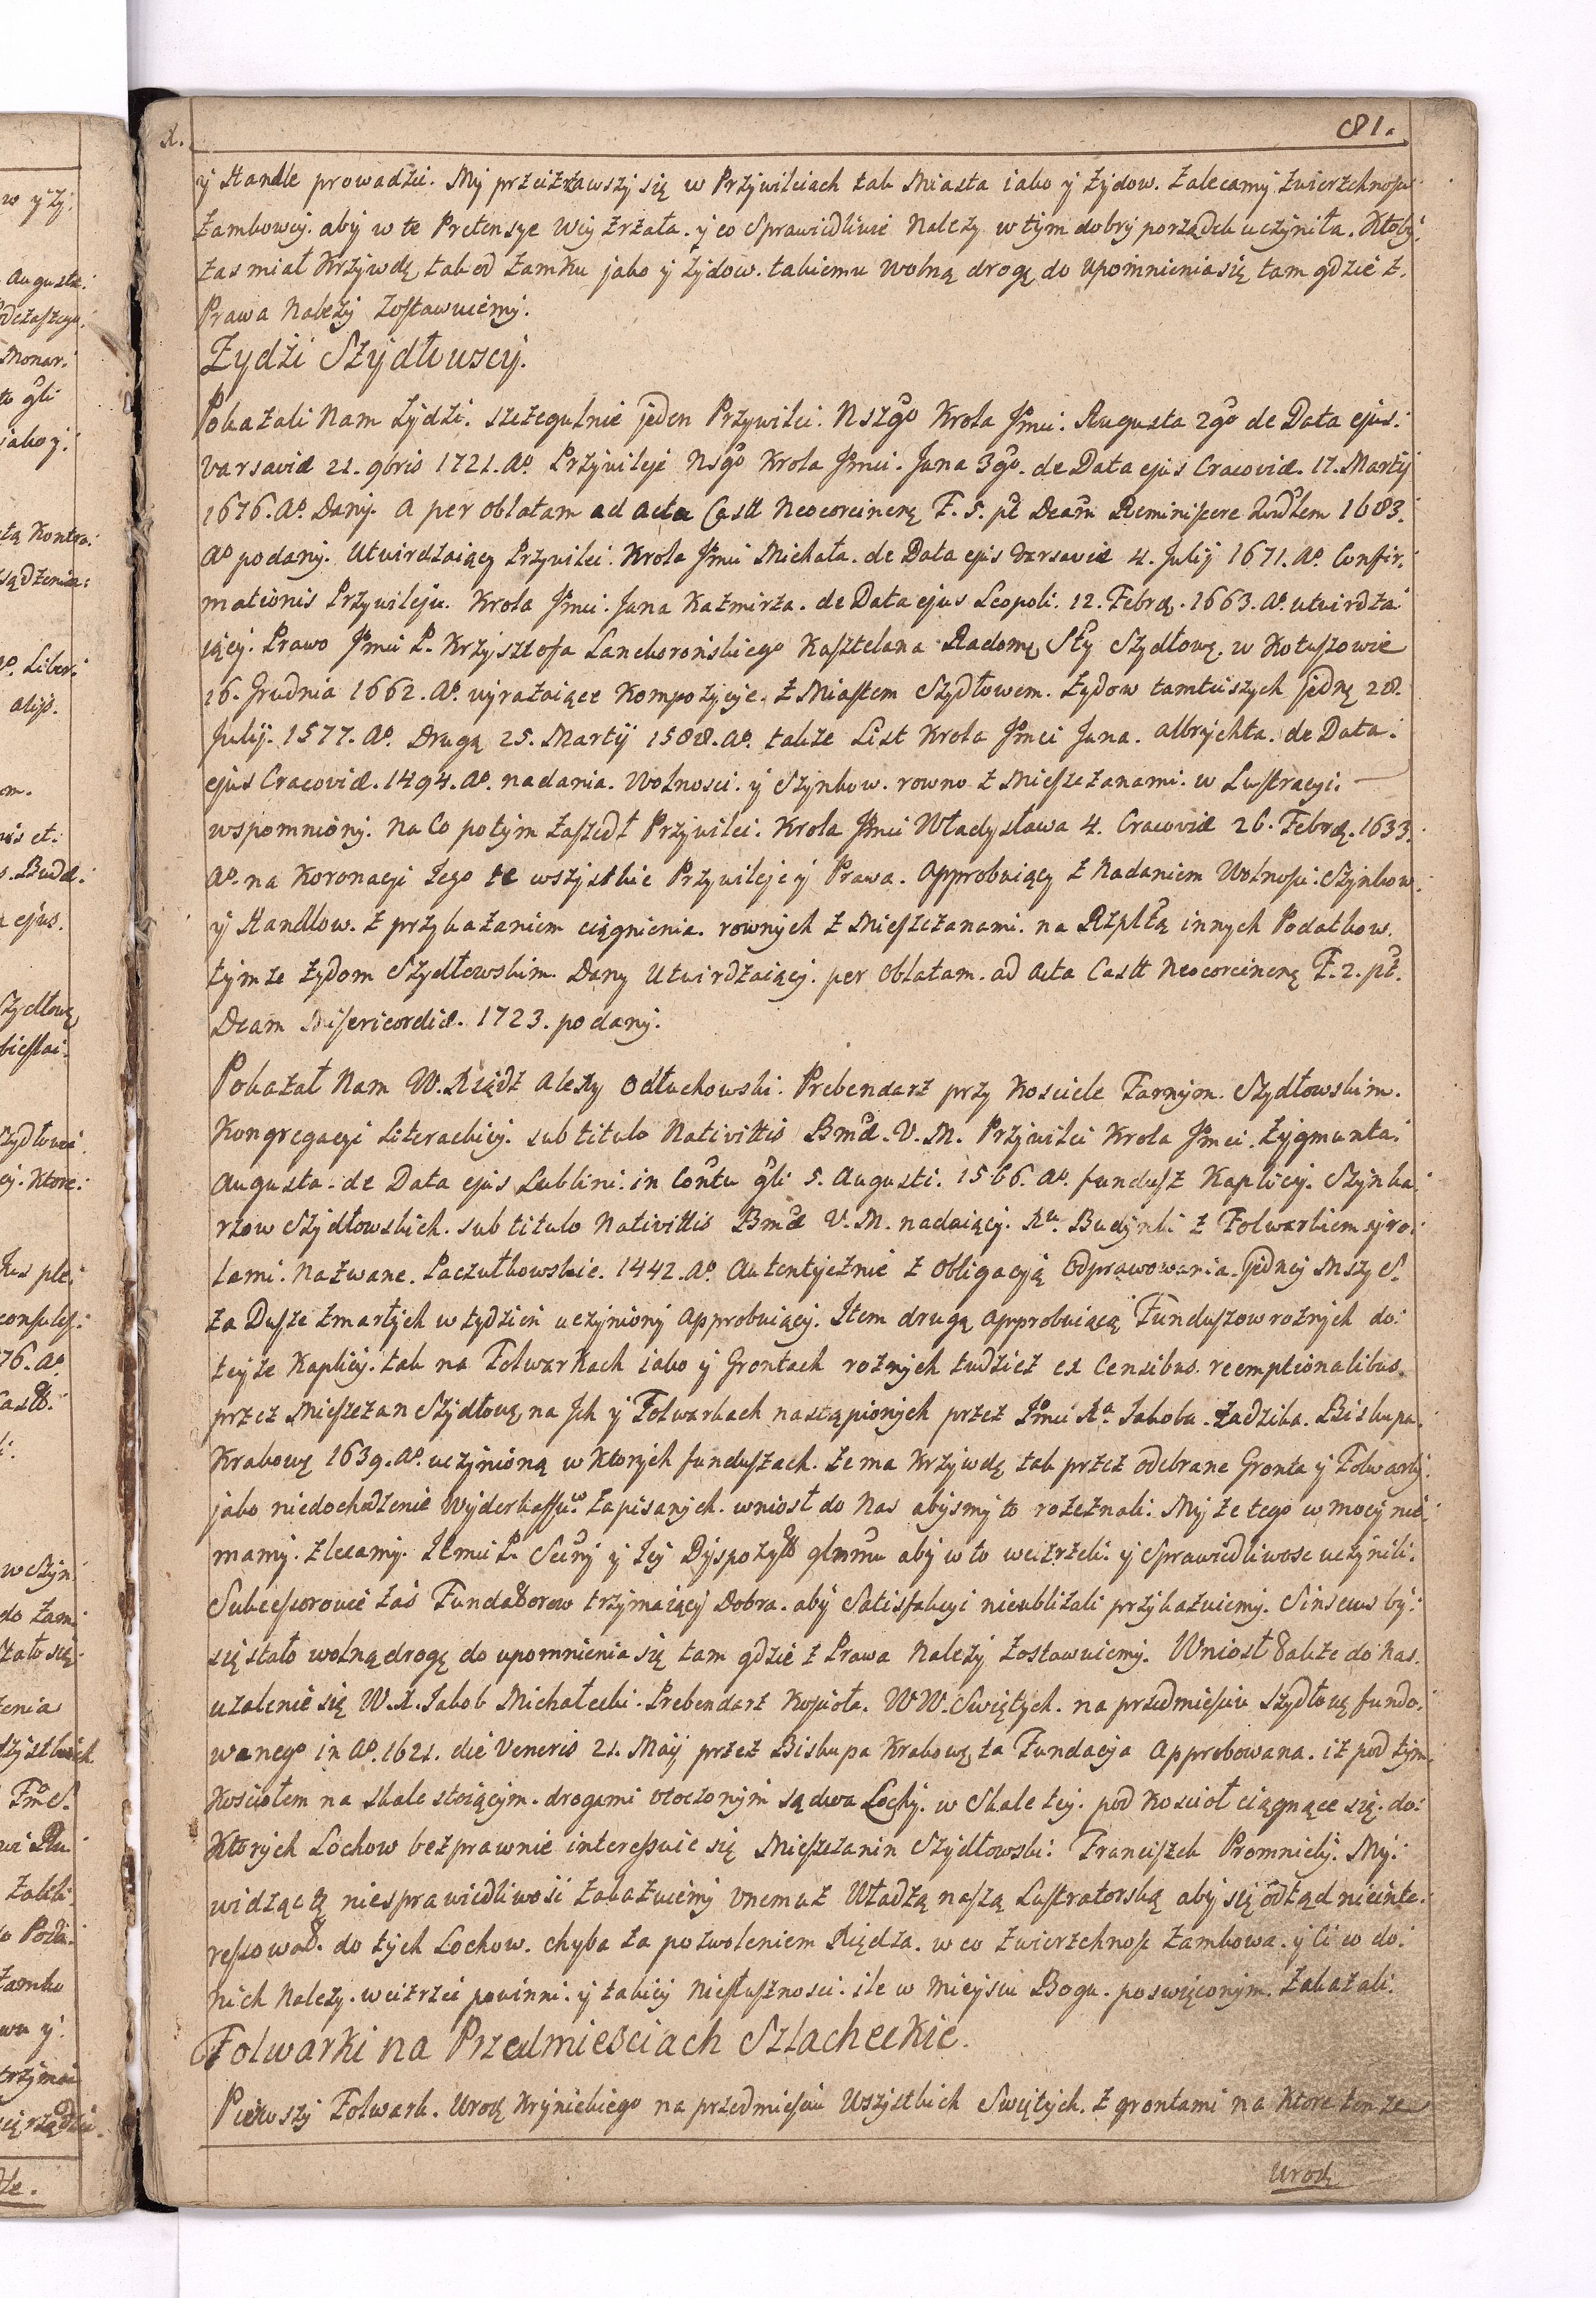 81.
y Handle prowadzić. My przeizrzawszy się w Przywileiach tak Miasta iako y Żydow. Zalecamy Zwierzchnosci
Zamkowey. aby w te Pretensye weyzrzała. y co Sprawiedliwie Należy w tym dobry porządek uczyniła. Ktoby
zas miał Krzywdę tak od Zamku jako y Żydow. takiemu wolną drogę do upomnienia się tam gdzie z.
Prawa Należy Zostawuiemy.
Żydzi Szydłuwscy.
Pokazali Nam Żydzi. szczegulnie jeden Przywiley. Nszgo Krola Jmci. Augusta 2go de Data ejus.
Varsaviæ 21. 9bris 1721. Ao. Przywileje Nsgo Krola Jmci. Jana 3go. de Data ejus Cracoviæ. 17. Martij
1676. Ao. Dany. A per oblatam ad Acta Castr Neocorcinenę F. 5. pt Dcam Reminiscere 1683.
Ao podany. Utwirdzaiący Przywiley. Krola Jmci Michała. de Data ejus Varsaviæ 4. Julij 1671. Ao. Confir:
mationis Przywileju. Krola Jmci. Jana Kazmirza. de Data ejus Leopoli. 12. Febrę. 1663. Ao. utwirdza
iącej. Prawo Jmci P. Krzysztofa Lanckorońskiego Kasztelana Radomę Sty Szydłowę. w Kotuszowie
16. Grudnia 1662. Ao. wyrazaiące Kompozycyje. z Miastem Szydłowem. Żydow tamteiszych jednę 28.
Julij. 1577. Ao. Drugą 25. Martij 1588. Ao. takze List Krola Jmci Jana. Albrychta. de Data.
ejus Cracoviæ. 1494. Ao. nadania. Wolnosci. y Szynkow. rowno z Mieszczanami. w Lustracyi.
wspomniony. na Co potym zaszedł Przywiley. Krola Jmci Władysława 4. Cracoviæ 26. Febrę. 1633.
Ao. na Koronacyi Jego te wszystkie Przywileje y Prawa. Approbuiący z Nadaniem Wolnosci. Szynkow.
y Handlow. z przykazaniem ciągnienia. rownych z Mieszczanami. na Rzpltą innych Podatkow.
tymze Żydom Szydłowskim. Dany Utwirdzaiący. per oblatam. ad Acta Castr Neocorcinenę F. 2. pt.
Dcam Misericordiæ. 1723. podany.
Pokazał Nam W. Xiądz Alexy Odłuchowski. Prebendarz przy Kosciele Farnym. Szydłowskim.
Kongregacyi Literackiey. sub titulo Nativittis Bmæ. V. M. Przywiley Krola Jmci. Zygmunta.
Augusta. de Data ejus Lublini. in Contu gli 5. Augusti. 1566. Ao. fundusz Kaplicy. Szynka
rzow Szydłowskich. sub titulo Nativittis Bmæ V. M. nadaiący. Budynki z Folwarkiem y ro:
lami. Nazwane. Paczutkowskie. 1442. Ao. Autentycznie z obligacyją Odprawowania. jedney Mszy S.
za Dusze zmarłych w tydzień uczyniony Approbuiący. Item drugą approbuiącą Funduszow roznych do
teyze Kaplicy. tak na Folwarkach iako y Grontach roznych tudziez ex Censibus. reemptionalibus.
przez Mieszczan Szydłowę na Ich y Folwarkach nastąpionych przez Jmci Xa. Jakoba. Zadzika. Biskupa.
Krakowę 1639. Ao. uczynioną w Ktorych funduszach. ze ma Krzywdę tak przez odebrane Gronta y Folwarky.
jako niedochodzenie Wyderkaffuw zapisanych. wniosł do Nas abysmy to rozeznali. My ze tego w mocy nie
mamy. zlecamy. Jmci P. Sciny y Jey Dyspozytt glnmu aby w to weizrzeli. y Sprawiedliwosc uczynili.
Subcessorowie zas Fundatorow trzymaiący Dobra. aby Satisfakcyi nieublizali przykazuiemy. Sin secus by
się stało wolną drogę do upomnienia się tam gdzie z Prawa Należy zostawuiemy. Wniosł takze do Nas.
uzalenie się W. X. Jakob Michałecki. Prebendarz Kosciola. WW. Swiętych. na przedmiesciu Szydłowę fundo.
wanego in Ao. 1621. die Veneris 21. Maij przez Biskupa Krakowę ta Fundacyja Approbowana. iz pod tym
Kosciołem na skale stoiącym. drogami otoczonym są dwa Lochy. w Skale tey. pod Kosciol ciągnące się. do
Ktorych Lochow bezprawnie interessuie się Mieszczanin Szydłowski: Franciszek Promnicky. My.
widząc tę niesprawiedliwość zakazuiemy onemuz Władzą naszą Lustratorską aby się odtąd nieinte.
ressował. do tych Lochow. chyba za pozwoleniem Xiędza. w co Zwierzchnosc Zamkowa. y Ci co do
nich Należy. weizrzeć powinni. y takiey niesłusznosci. ile w Mieyscu Bogu. poswięconym. zakazali.
Folwarki na Przedmieściach Szlacheckie.
Pierwszy Folwark. Urodz Krynickiego na przedmiesciu Wszystkich Swiętych. z grontami na Ktore tenze
Urodz